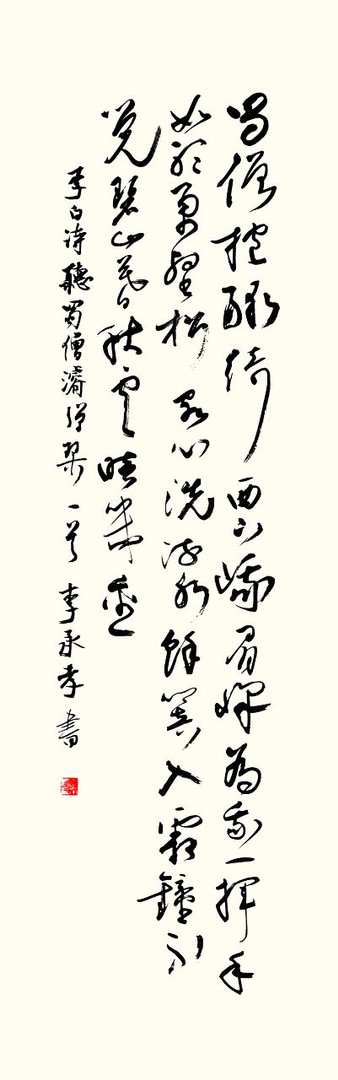 蜀僧抱綠綺西下峨眉峰為我一揮手
如聽萬壑松客心洗流水餘響入霜鐘不
覺碧山暮秋雲暗幾重
李白诗聽蜀僧濬彈琴一首 李承孝書